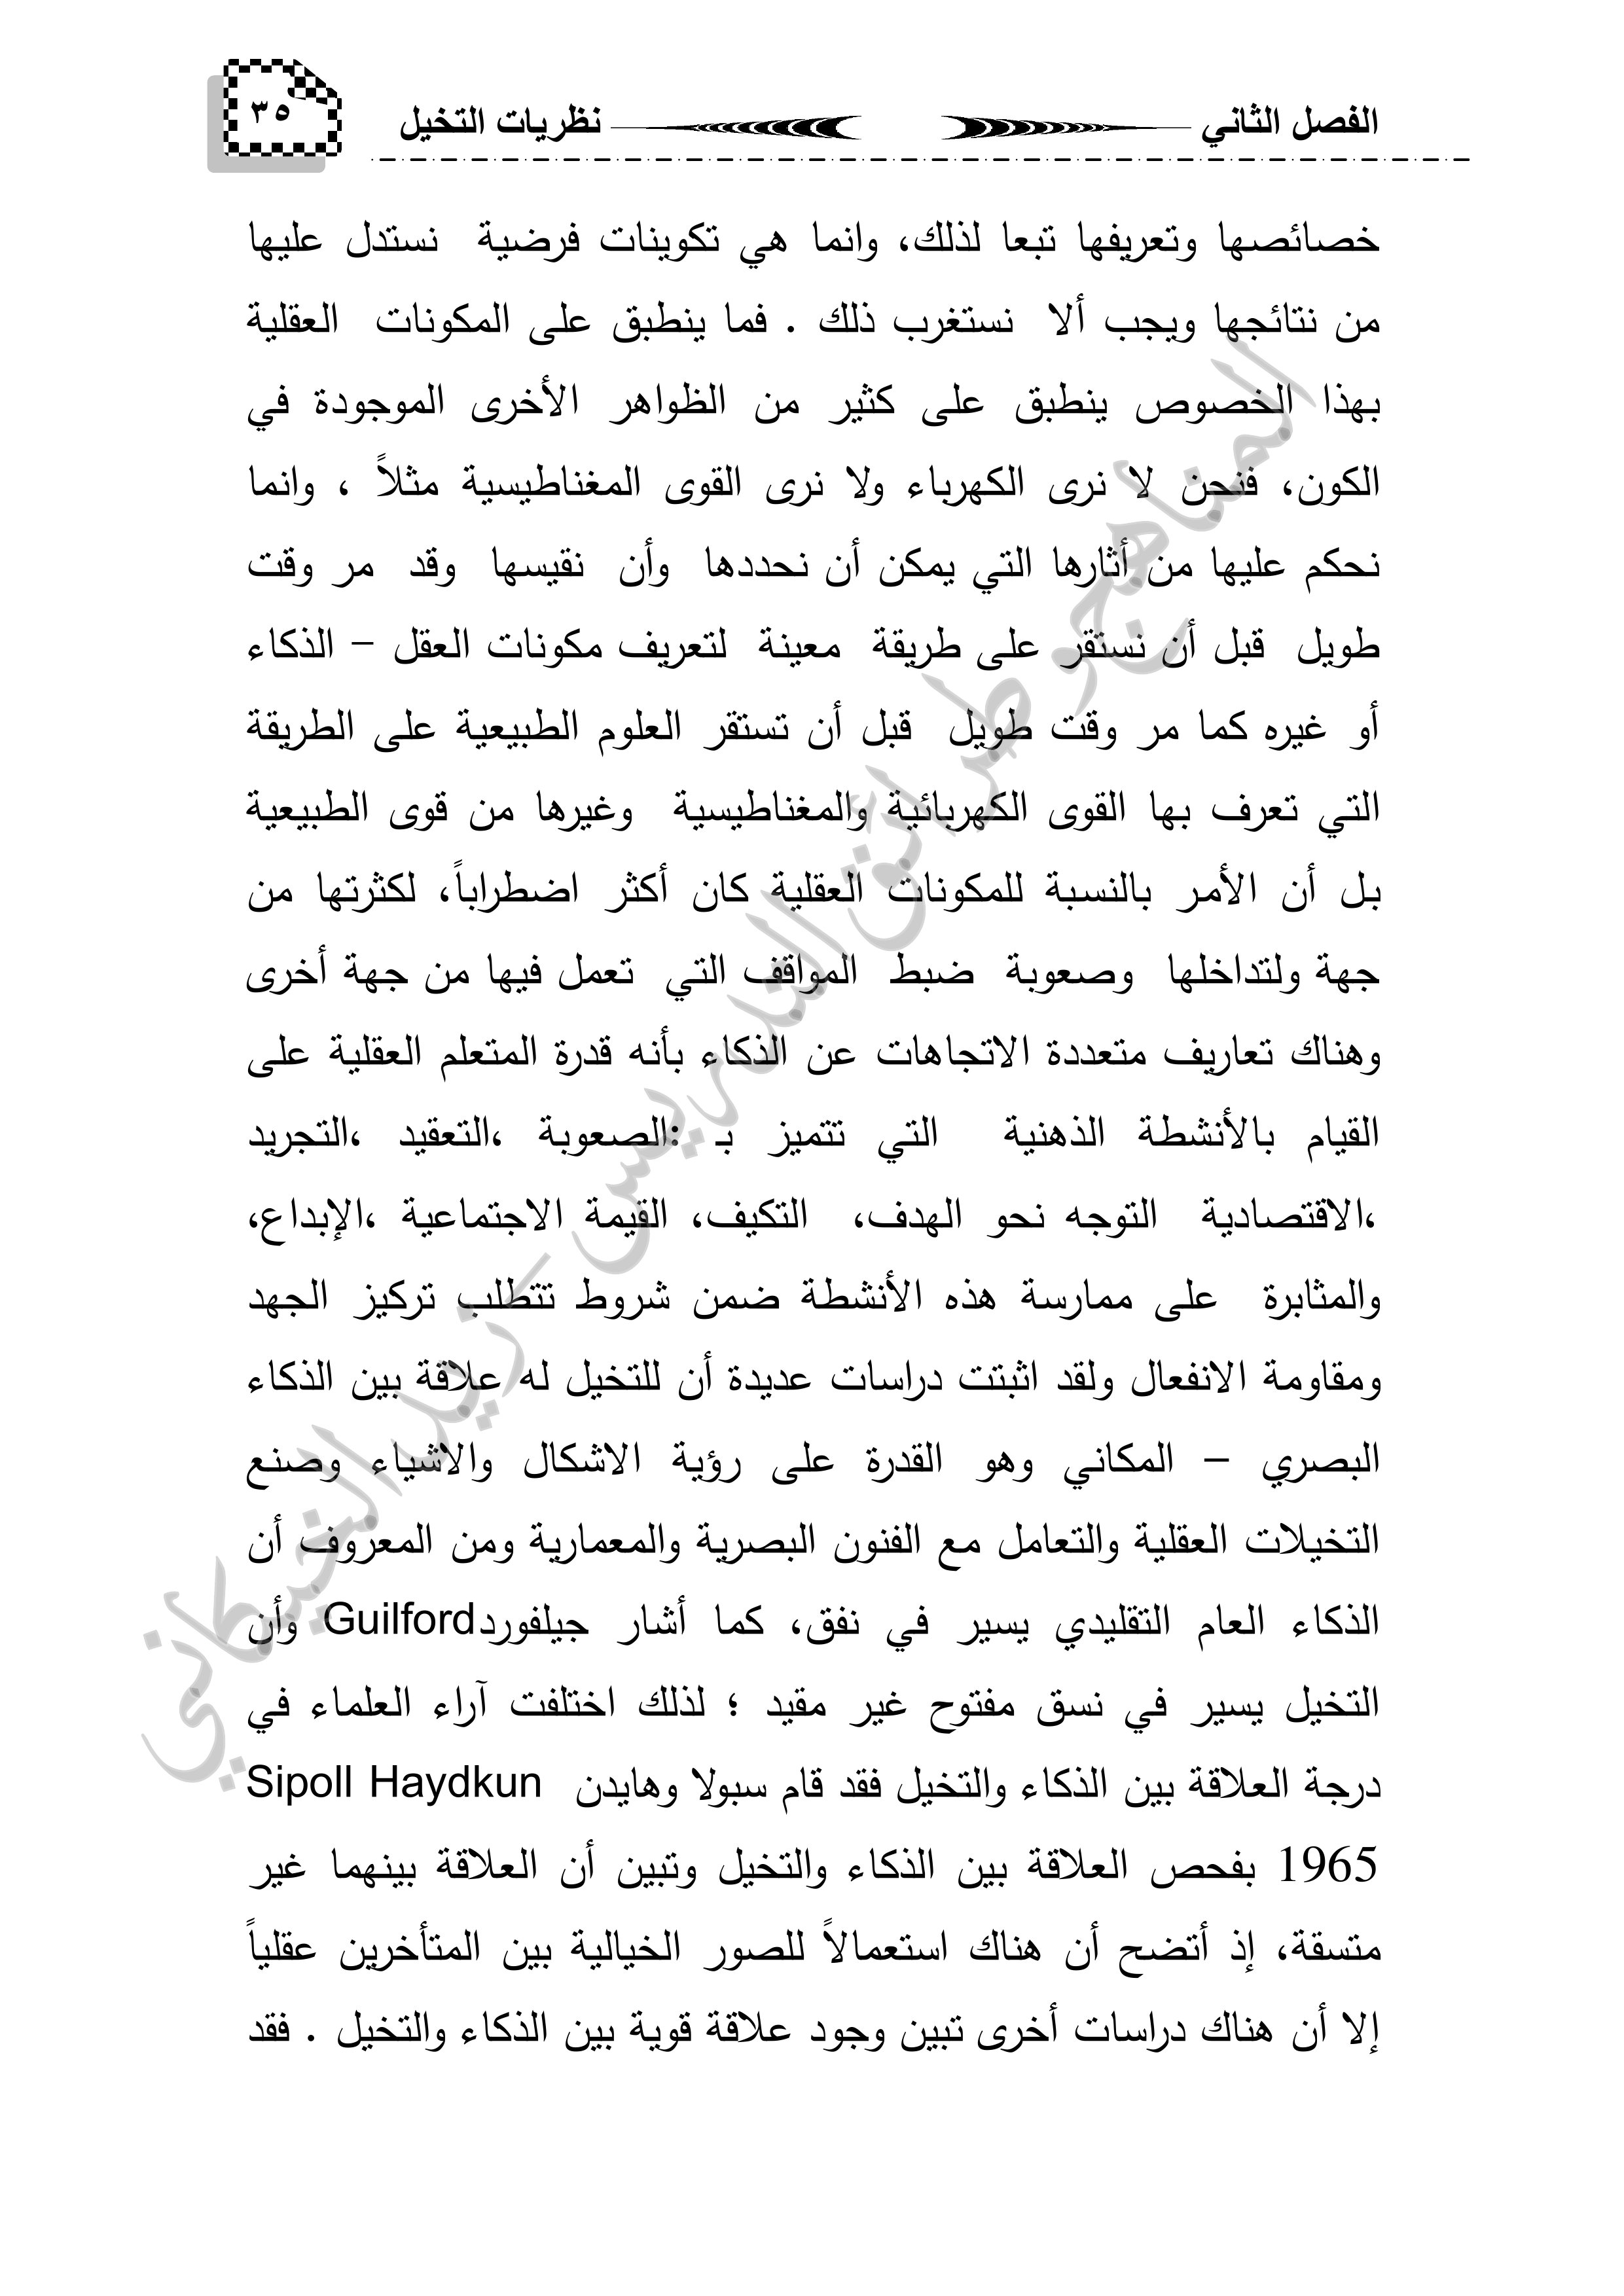 الفصل الثاني نظريات التخيل ٣٥
خصائصها وتعريفها تبعا لذلك، وانما هي تكوينات فرضية نستدل عليها
من نتائجها ويجب ألا نستغرب ذلك . فما ينطبق على المكونات العقلية
بهذا الخصوص ينطبق على كثير من الظواهر الأخرى الموجودة في
الكون، فنحن لا نرى الكهرباء ولا نرى القوى المغناطيسية مثلاً ، وانما
نحكم عليها من أثارها التي يمكن أن نحددها وأن نقيسها وقد مر وقت
طويل قبل أن نستقر على طريقة معينة لتعريف مكونات العقل – الذكاء
أو غيره كما مر وقت طويل قبل أن تستقر العلوم الطبيعية على الطريقة
التي تعرف بها القوى الكهربائية والمغناطيسية وغيرها من قوى الطبيعية
بل أن الأمر بالنسبة للمكونات العقلية كان أكثر اضطراباً، لكثرتها من
جهة ولتداخلها وصعوبة ضبط المواقف التي تعمل فيها من جهة أخرى
وهناك تعاريف متعددة الاتجاهات عن الذكاء بأنه قدرة المتعلم العقلية على
القيام بالأنشطة الذهنية التي تتميز بـ :الصعوبة ،التعقيد ،التجريد
،الاقتصادية التوجه نحو الهدف، التكيف، القيمة الاجتماعية ،الإبداع،
والمثابرة على ممارسة هذه الأنشطة ضمن شروط تتطلب تركيز الجهد
ومقاومة الانفعال ولقد اثبتت دراسات عديدة أن للتخيل له علاقة بين الذكاء
البصري – المكاني وهو القدرة على رؤية الاشكال والاشياء وصنع
التخيلات العقلية والتعامل مع الفنون البصرية والمعمارية ومن المعروف أن
الذكاء العام التقليدي يسير في نفق، كما أشار جيلفورد Guilford وأن
التخيل يسير في نسق مفتوح غير مقيد ؛ لذلك اختلفت آراء العلماء في
درجة العلاقة بين الذكاء والتخيل فقد قام سبولا وهايدن Sipoll Haydkun
1965 بفحص العلاقة بين الذكاء والتخيل وتبين أن العلاقة بينهما غير
متسقة، إذ أتضح أن هناك استعمالاً للصور الخيالية بين المتأخرين عقلياً
إلا أن هناك دراسات أخرى تبين وجود علاقة قوية بين الذكاء والتخيل . فقد
المناهج وطرائق التدريس – زيد الخيكاني